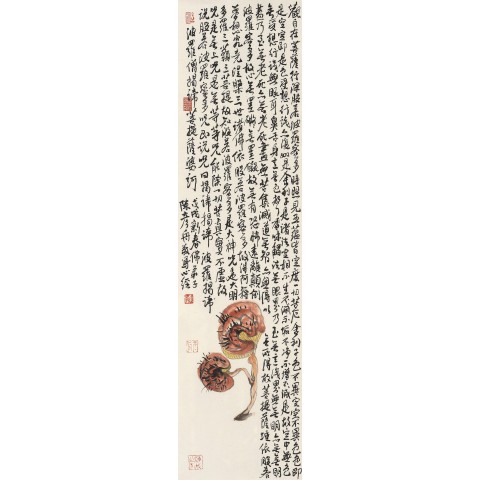 觀自在菩薩行深般若波羅蜜多時照見五蘊皆空度一切苦厄舍利子色不異空空不異色色即
是空空即是色受想行識亦復如是舍利子是諸法空相不生不滅不垢不淨不增不減是故空中無色
無受想行識無眼耳鼻舌身意無色聲香味觸法無眼界乃至無意識界無無明亦無無明
盡乃至無老死亦無老死盡無苦集滅道無智亦無得以無所得故菩提薩埵依般若
波羅蜜多故心無罣礙無罣礙故無有恐怖遠離顛倒
夢想究竟涅槃三世諸佛依般若波羅蜜多故得阿耨
多羅三藐三菩提故知般若波羅蜜多是大神咒是大明
咒是無上咒是無等等咒能除一切苦真實不虛故
說般若波羅蜜多咒即說咒曰揭諦揭諦波羅揭諦
波羅僧揭諦菩提薩婆訶
戊戌新春佛弟子
陳彥舟敬寫心經